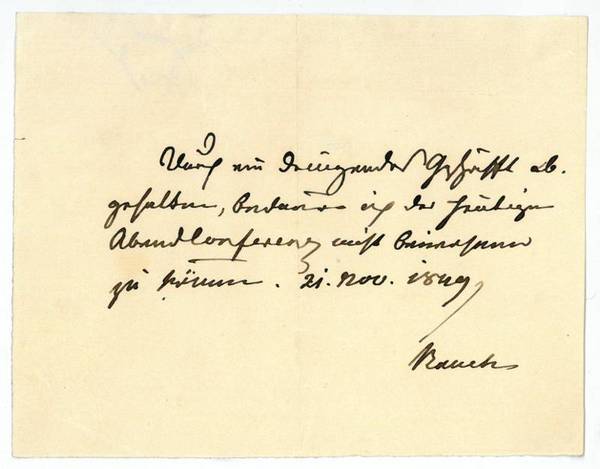 Durch ein dringendes Geschäfft ab-
gehalten, bedaure ich der heutigen
Abendconferenz nicht beiwohnen
zu können. 21. Nov. 1849
Rauch